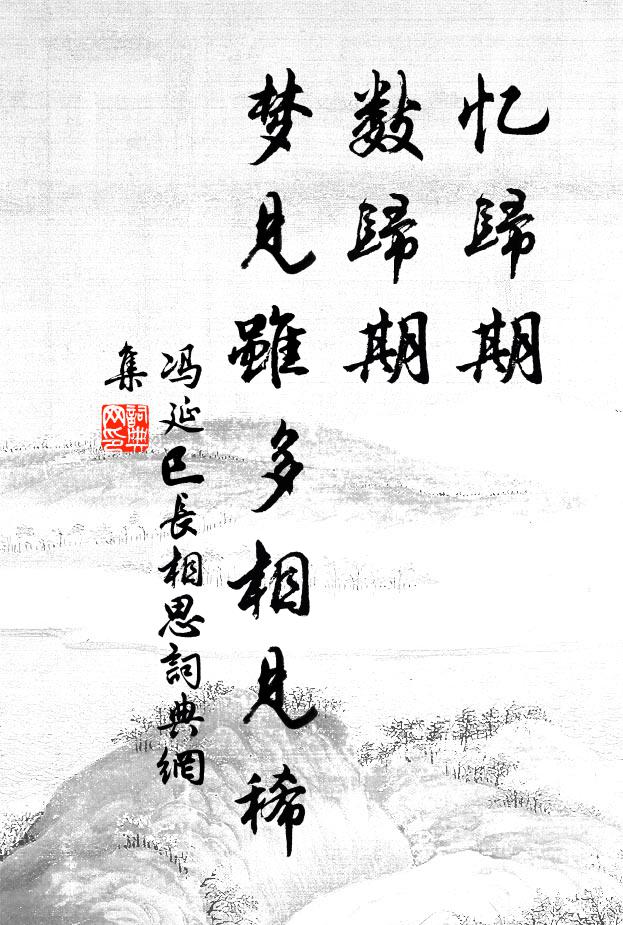 忆歸期
數歸期
梦見雖多相見稀
冯延巳長相思詞典網
集
詞典
网印